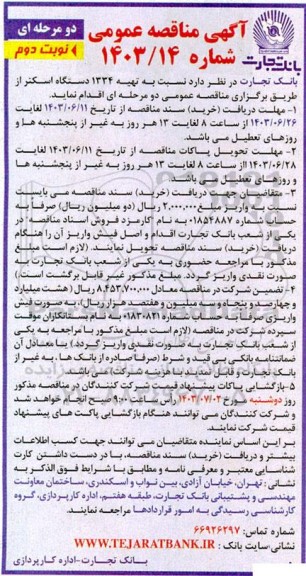 آگهی مناقصه عمومی
شماره ۱۴۰۳/۱۴
دو مرحله ای
نوبت دوم
بانک تجارت
بانک تجارت در نظر دارد نسبت به تهیه ۱۳۳۴ دستگاه اسکنر از
طریق برگزاری مناقصه عمومی دو مرحله ای اقدام نماید.
۱- مهلت دریافت (خرید) سند مناقصه از تاریخ ۱۴۰۳/۰۶/۱۱ لغایت
۱۴۰۳/۰۶/۲۶ از ساعت ۸ لغایت ۱۳ هر روز به غیر از پنجشنبه ها و
روزهای تعطیل می باشد.
۲- مهلت تحویل پاکات مناقصه از تاریخ ۱۴۰۳/۰۶/۱۱ لغایت
۱۴۰۳/۰۶/۲۸ از ساعت ۸ لغایت ۱۳ هر روز به غیر از پنجشنبه ها
و روزهای تعطیل می باشد.
۳- متقاضیان جهت دریافت (خرید) سند مناقصه می بایست
نسبت به واریز مبلغ ۲,۰۰۰,۰۰۰ ریال (دو میلیون ریال) صرفاً به
حساب شماره ۰۱۸۵۴۸۸۷ به نام "کارمزد فروش اسناد مناقصه" در
یکی از شعب بانک تجارت اقدام و اصل فیش واریز آن را هنگام
دریافت (خرید) سند مناقصه تحویل نمایند. (لازم است مبلغ
مذکور با مراجعه حضوری به یکی از شعب بانک تجارت به
صورت نقدی واریز گردد. مبلغ مذکور غیر قابل برگشت است)
۴- تضمین شرکت در مناقصه معادل ۸,۴۵۳,۷۰۰,۰۰۰ ریال (هشت میلیارد
و چهارصد و پنجاه و سه میلیون و هفتصد هزار ریال) به صورت فیش
واریزی به حساب شماره ۰۱۸۳۰۸۳۱ به نام بستانکاران موقت
سپرده شرکت در مناقصه (لازم است مبلغ مذکور با مراجعه به یکی
از شعب بانک تجارت به صورت نقدی واریز گردد) یا معادل آن
ضمانتنامه بانکی بی قید و شرط (صرفاً صادره از بانک ها، به غیر از
بانک تجارت) و قابل تمدید با درخواست بانک می باشد.
۵- بازگشایی پاکات پیشنهاد قیمت شرکت کنندگان در مناقصه مذکور
روز دوشنبه مورخ ۱۴۰۳/۰۷/۰۲ رأس ساعت ۹:۰۰ صبح انجام خواهد شد
و شرکت کنندگان می توانند هنگام بازگشایی پاکت های پیشنهاد
قیمت شرکت نمایند.
بر این اساس نماینده متقاضیان می توانند جهت کسب اطلاعات
بیشتر و دریافت (خرید) سند مناقصه، با در دست داشتن کارت
شناسایی معتبر و معرفی نامه و مطابق با شرایط فوق الذکر به
نشانی: تهران، خیابان آزادی، بین نواب و اسکندری، ساختمان معاونت
مهندسی و پشتیبانی بانک تجارت، طبقه هفتم، اداره کارپردازی، گروه
کارشناسی رسیدگی به امور قراردادها مراجعه نمایند.
شماره تماس: ۶۶۹۲۶۲۹۷
نشانی سایت بانک: WWW.TEJARATBANK.IR
بانک تجارت-اداره کارپردازی